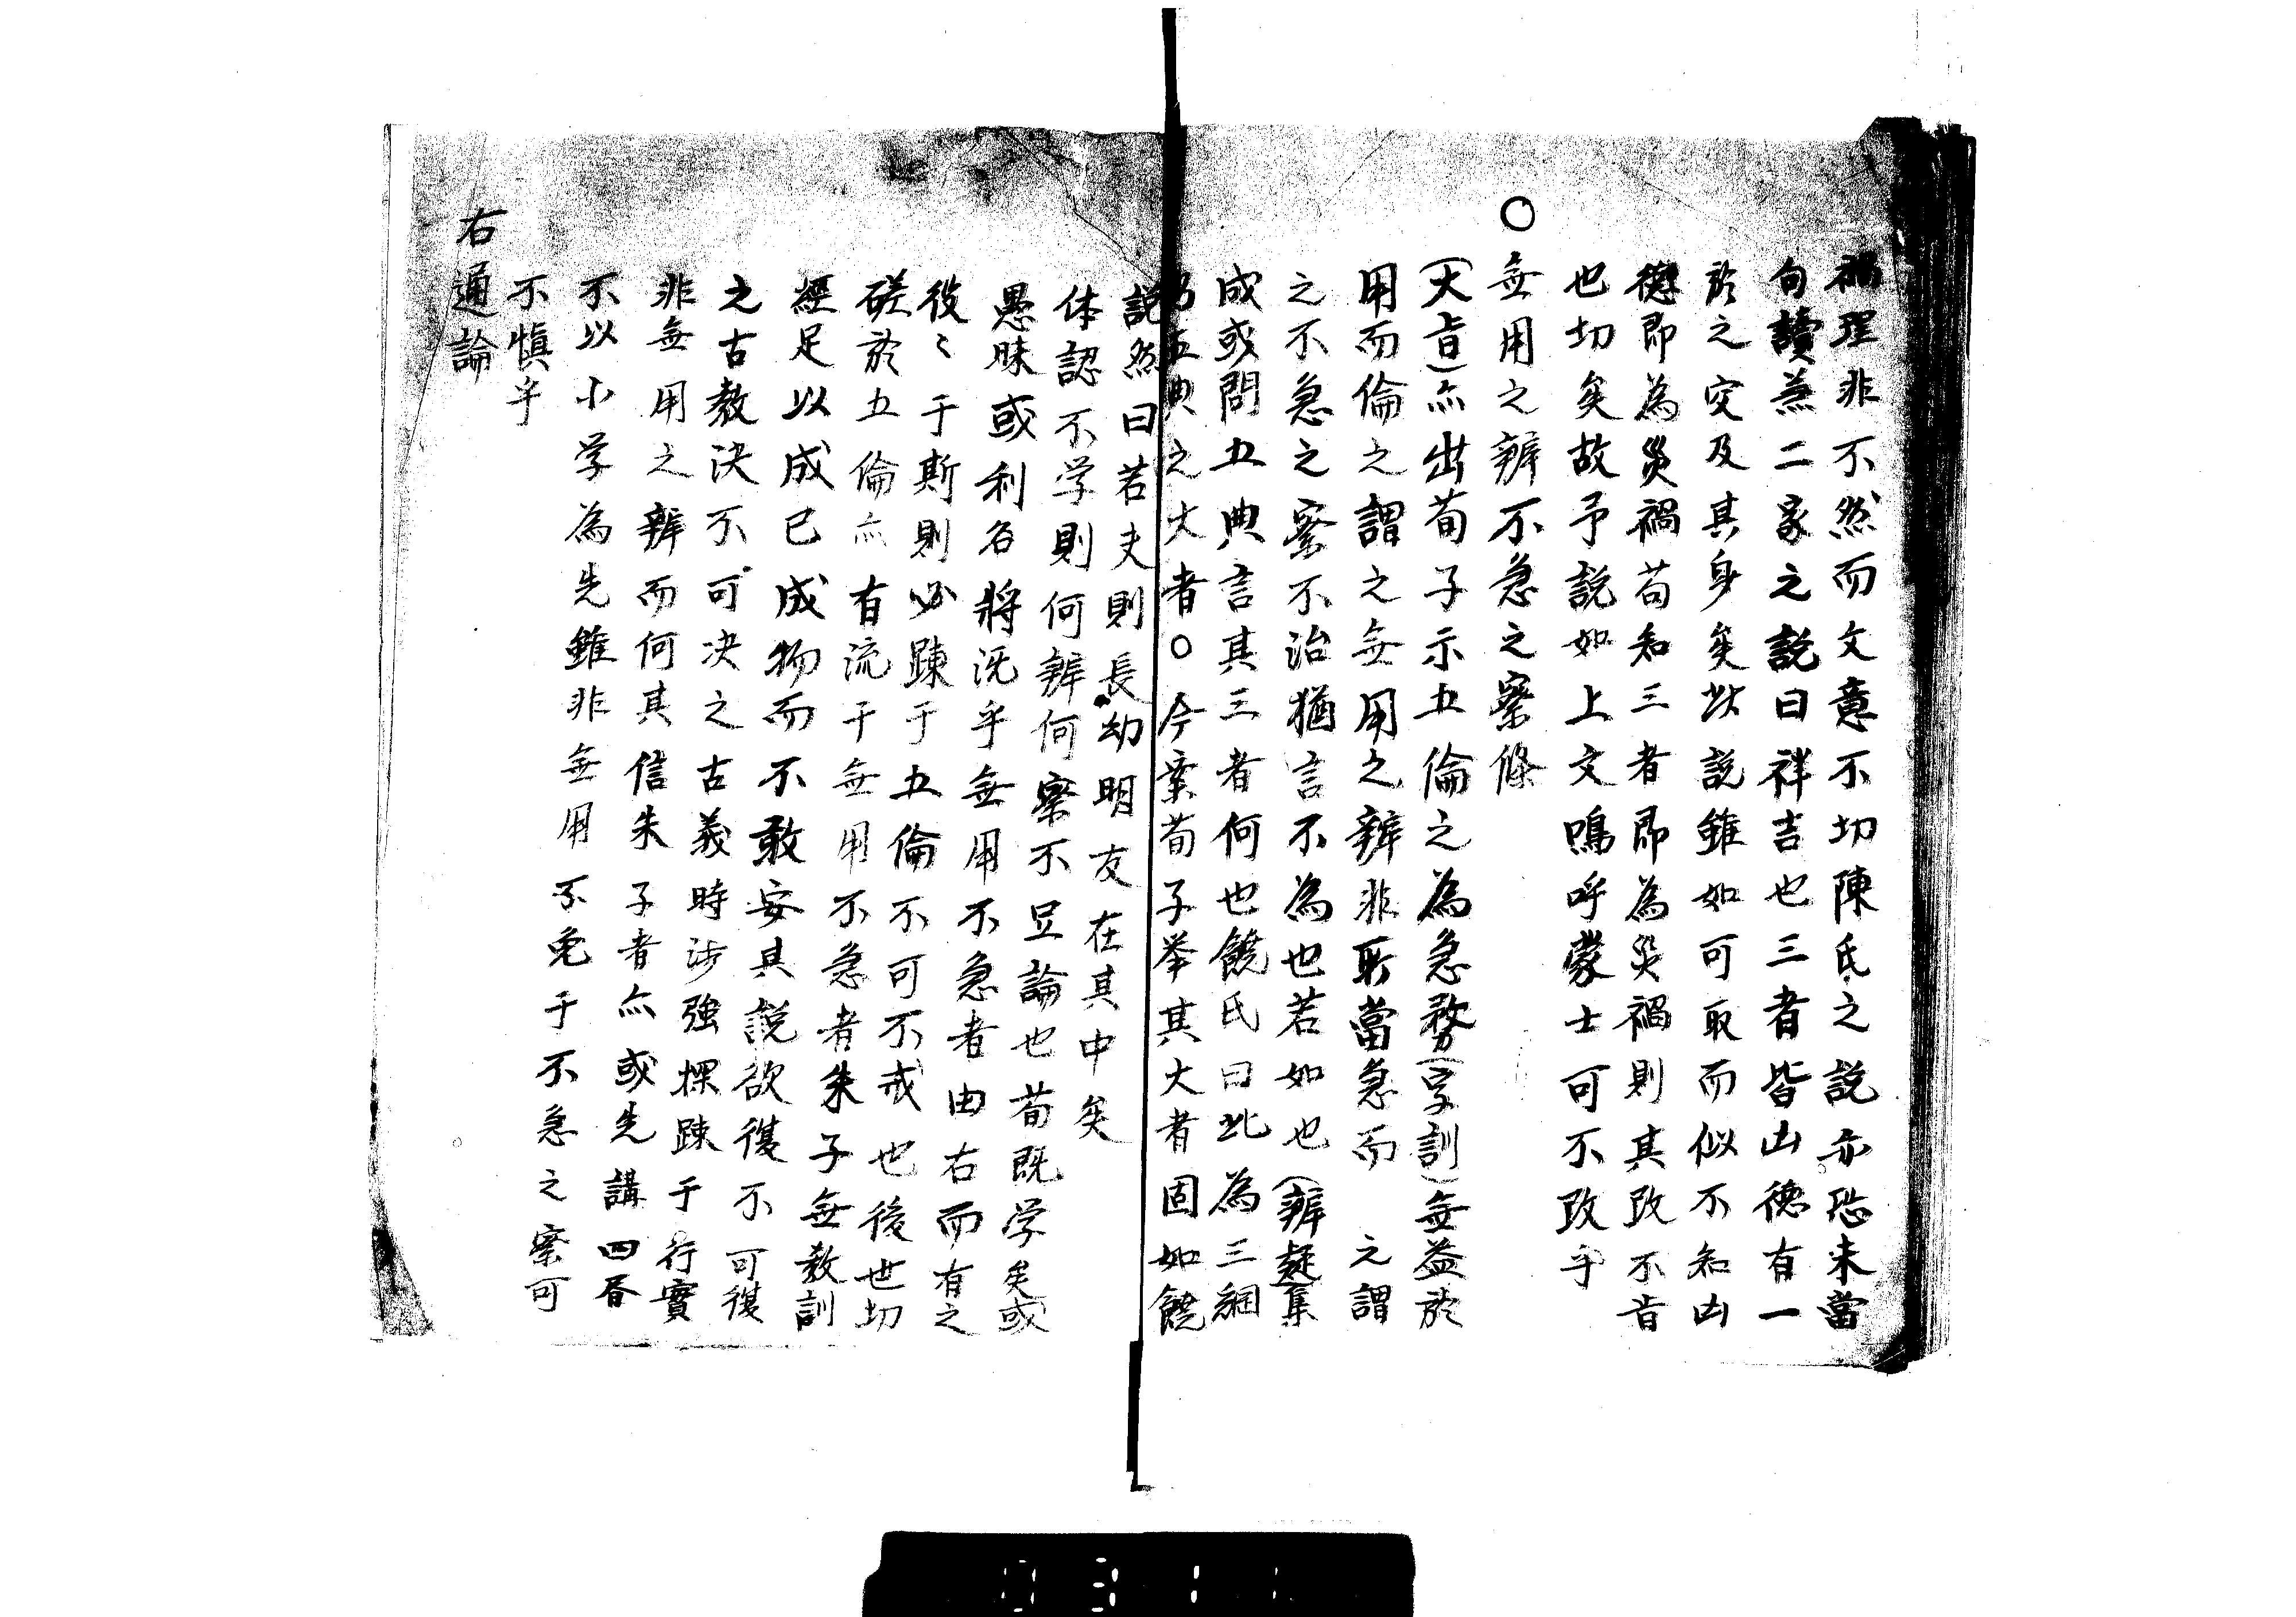 禍理非不然而文意不切陳氏之説亦恐未當
句讀蓋二家之説曰祥吉也三者皆凶德有一
於之灾及其身矣此説雖如可取而似不知凶
德即為災禍苟知三者即為災禍則其改不旨
也切矣故予説如上文嗚呼蒙士可不改乎
〇無用之辨不急之察條
(大旨)亦出荀子示五倫之為急務(字訓)無益於
用而倫之謂之無用之辨非所當急而 之謂
之不急之察不治猶言不為也若如也(辨疑)集
成或問五典言其三者何也饒氏曰此為三綱
乃五典之大者〇今案荀子挙其大者固如饒
説然曰若夫則長幼明友在其中矣
体認不学則何辨何察不足論也荀既学矣或
愚昧或利名將洸乎無用不急者由右而有之
役々于斯則必踈于五倫不可不戒也後世切
磋於五倫亦有流于無用不急者朱子無教訓
經足以成己成物而不敢安其説欲復不可復
之古教決不可決之古義時渉強探踈于行實
非無用之辨而何其信朱子者亦或先講四書
不以小学為先雖非無用不免于不急之察可
不慎乎
右通論
0311